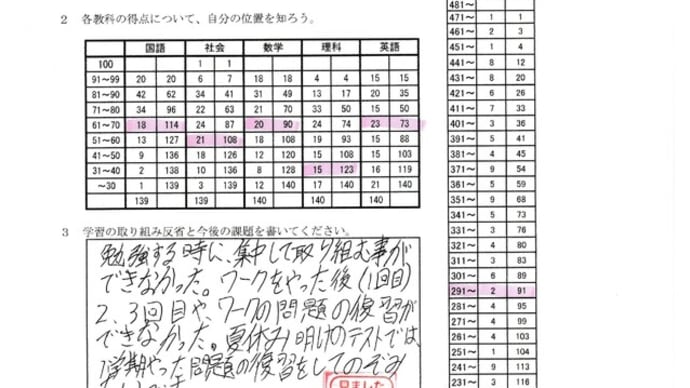 2 各教科の得点について、自分の位置を知ろう。
国語 社会 数学 理科 英語
100 1 1
91～99 20 20 6 7 18 18 4 4 15 15
81～90 42 62 34 41 31 49 13 17 20 35
71～80 34 96 22 63 21 70 33 50 15 50
61～70 18 114 24 87 20 90 24 74 23 73
51～60 13 127 21 108 18 108 19 93 15 88
41～50 9 136 18 126 12 120 15 108 15 103
31～40 2 138 10 136 8 128 15 123 16 119
～30 1 139 3 139 12 140 17 140 21 140
139 139 140 140 140
3 学習の取り組み反省と今後の課題を書いてください。
勉強する時に、集中して取り組む事が
できなかった。ワークをやった後(1回目)
2、3回目や、ワークの問題の復習が
できなかった。夏休み明けのテストでは、
1学期やった問題の復習をしてのぞみ
見ました
481～
471～ 1 1
461～ 2 3
451～ 1 4
441～ 8 12
431～ 8 20
421～ 6 26
411～ 7 33
401～ 3 36
391～ 5 41
381～ 4 45
371～ 9 54
361～ 5 59
351～ 9 68
341～ 5 73
331～ 3 76
321～ 4 80
311～ 3 83
301～ 6 89
291～ 2 91
281～ 4 95
271～ 4 99
261～ 4 103
251～ 1 104
241～ 9 113
231～ 3 116